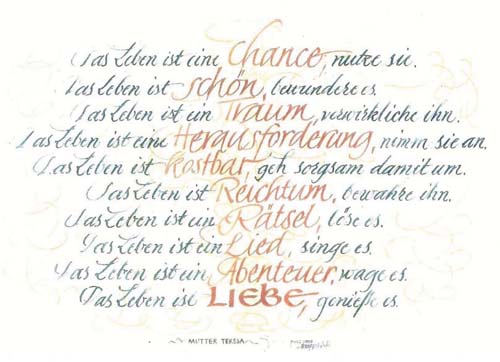 Das Leben ist eine Chance, nutze sie.
Das Leben ist schön, bewundere es.
Das Leben ist ein Traum, verwirkliche ihn.
Das Leben ist eine Herausforderung, nimm sie an.
Das Leben ist kostbar, geh sorgsam damit um.
Das Leben ist Reichtum, bewahre ihn.
Das Leben ist ein Rätsel, löse es.
Das Leben ist ein Lied, singe es.
Das Leben ist ein Abenteuer, wage es.
Das Leben ist LIEBE, genieße es.
MUTTER TERESA